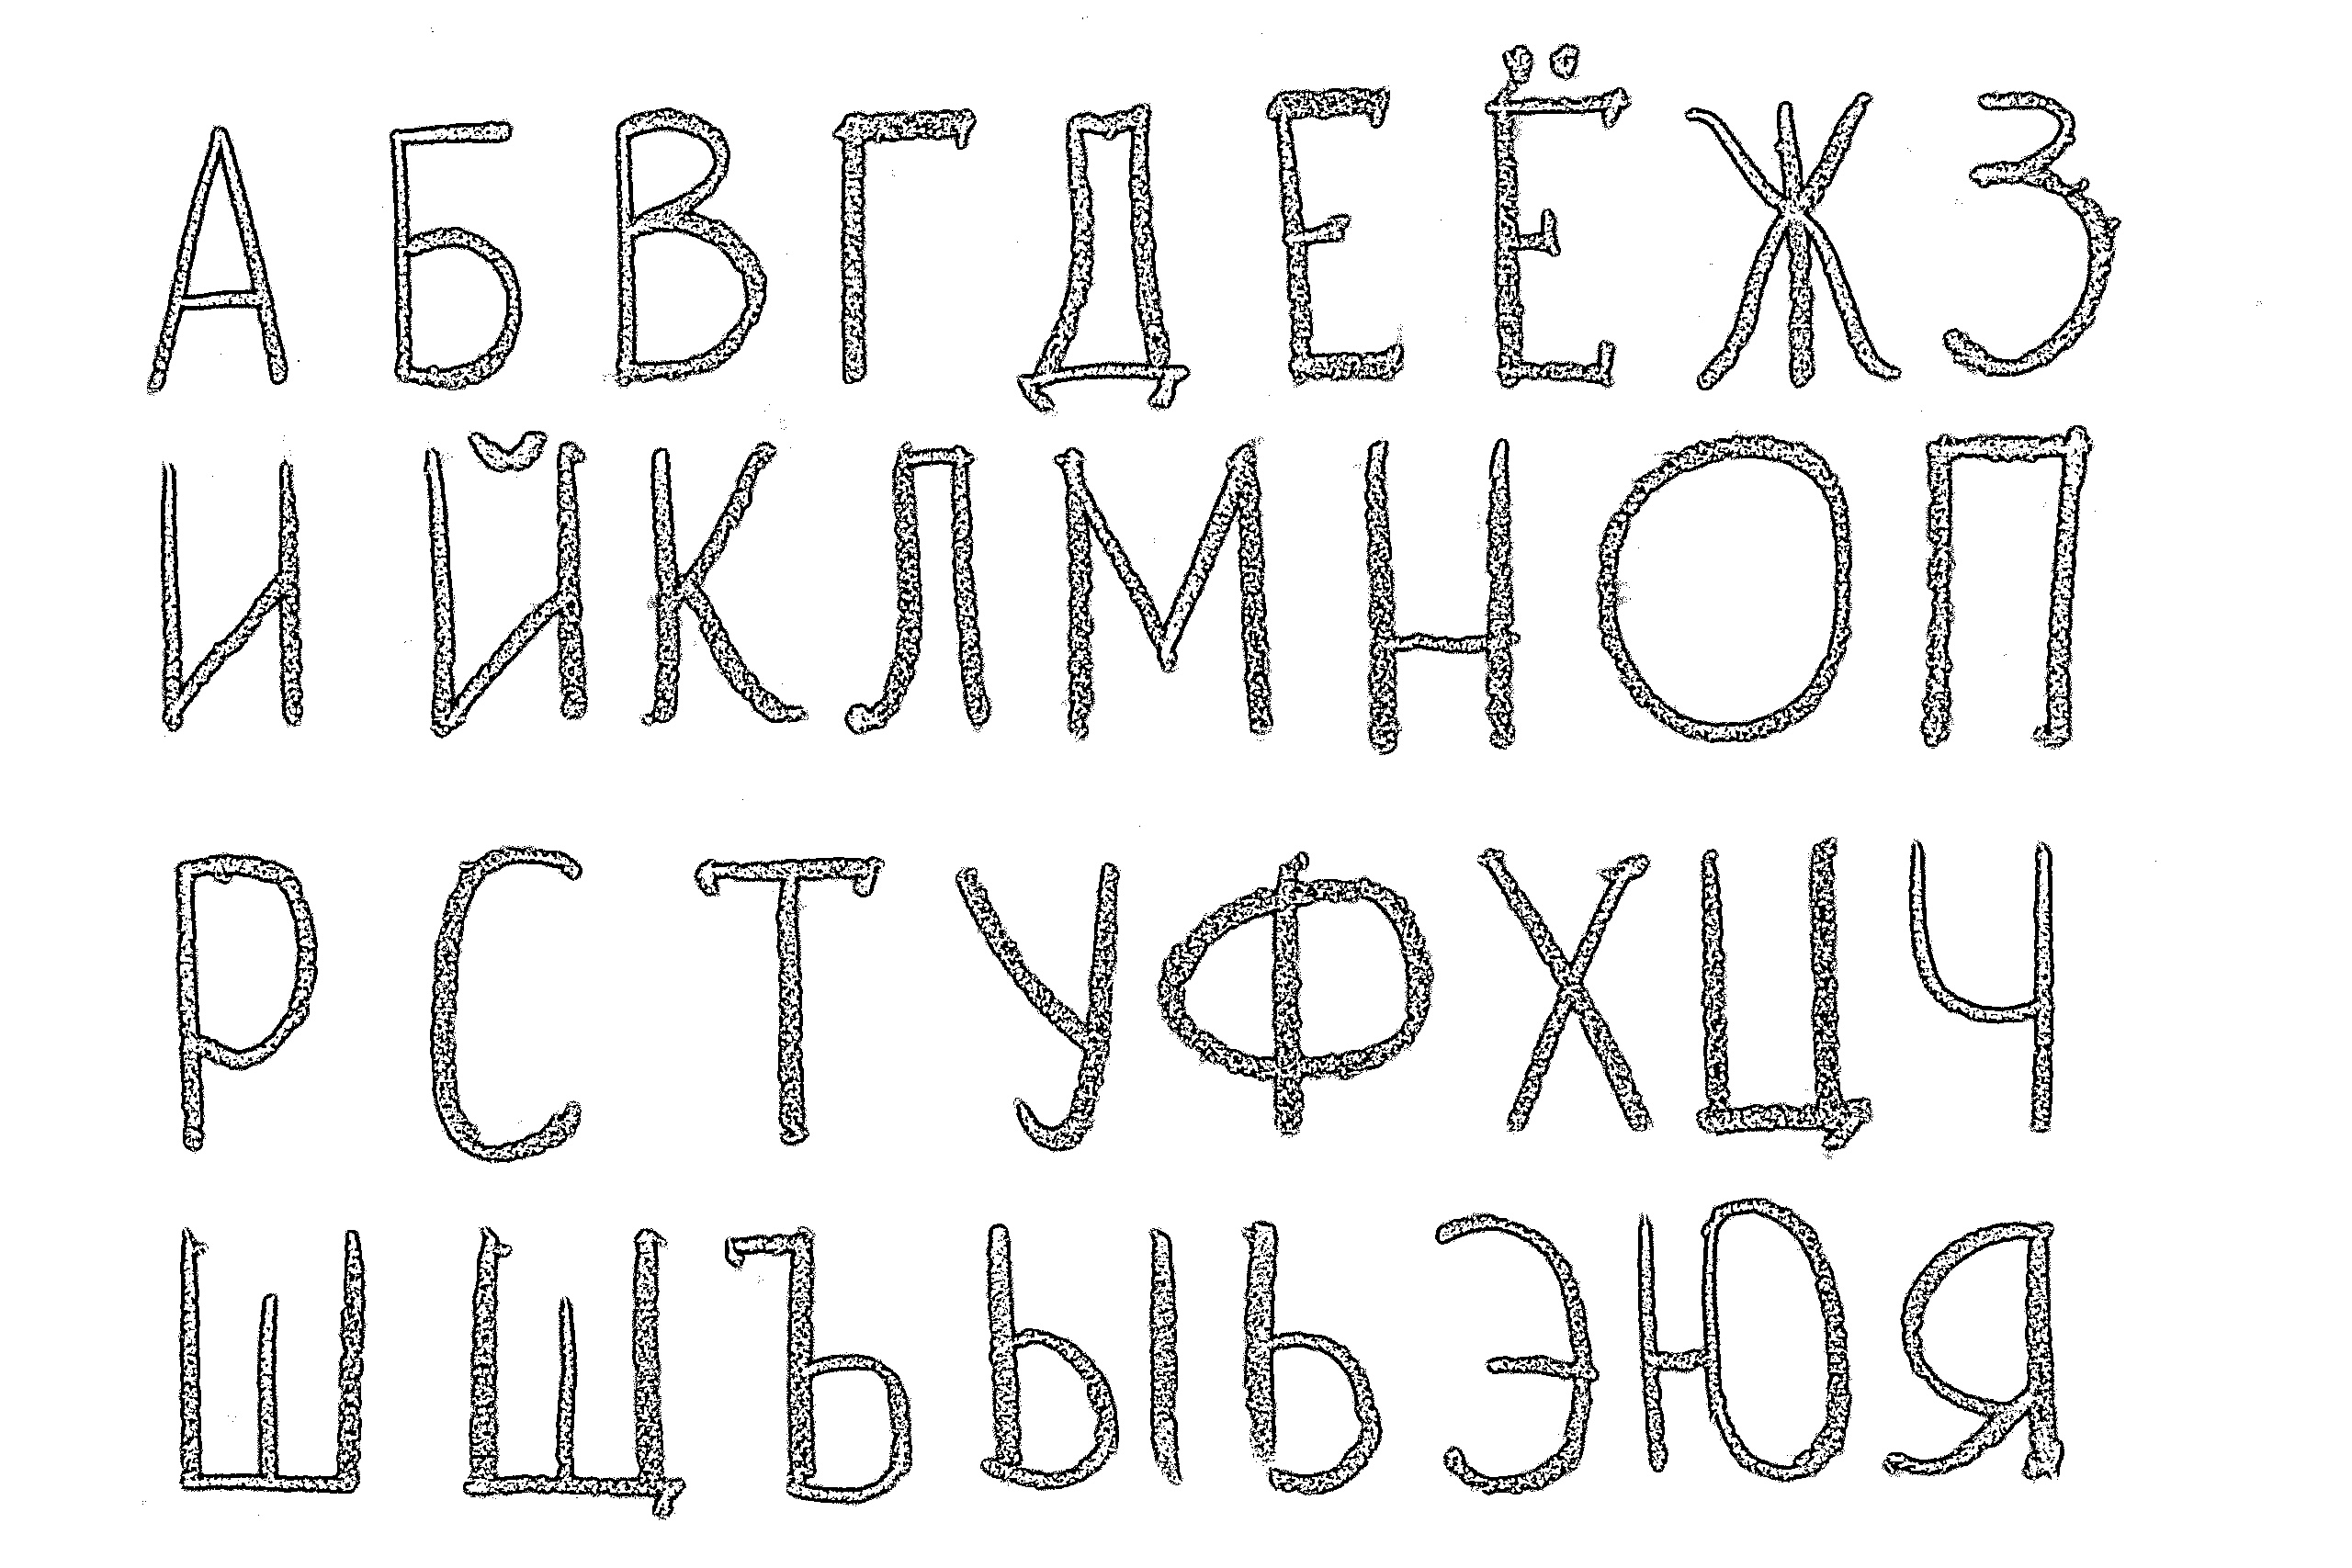 А Б В Г Д Е Ё Ж З
И Й К Л М Н О П
Р С Т У Ф Х Ц Ч
Ш Щ Ъ Ы Ь Э Ю Я